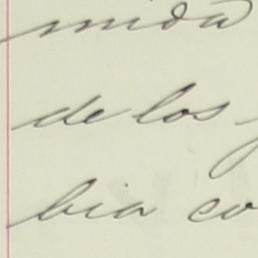 mida
de los
bia co